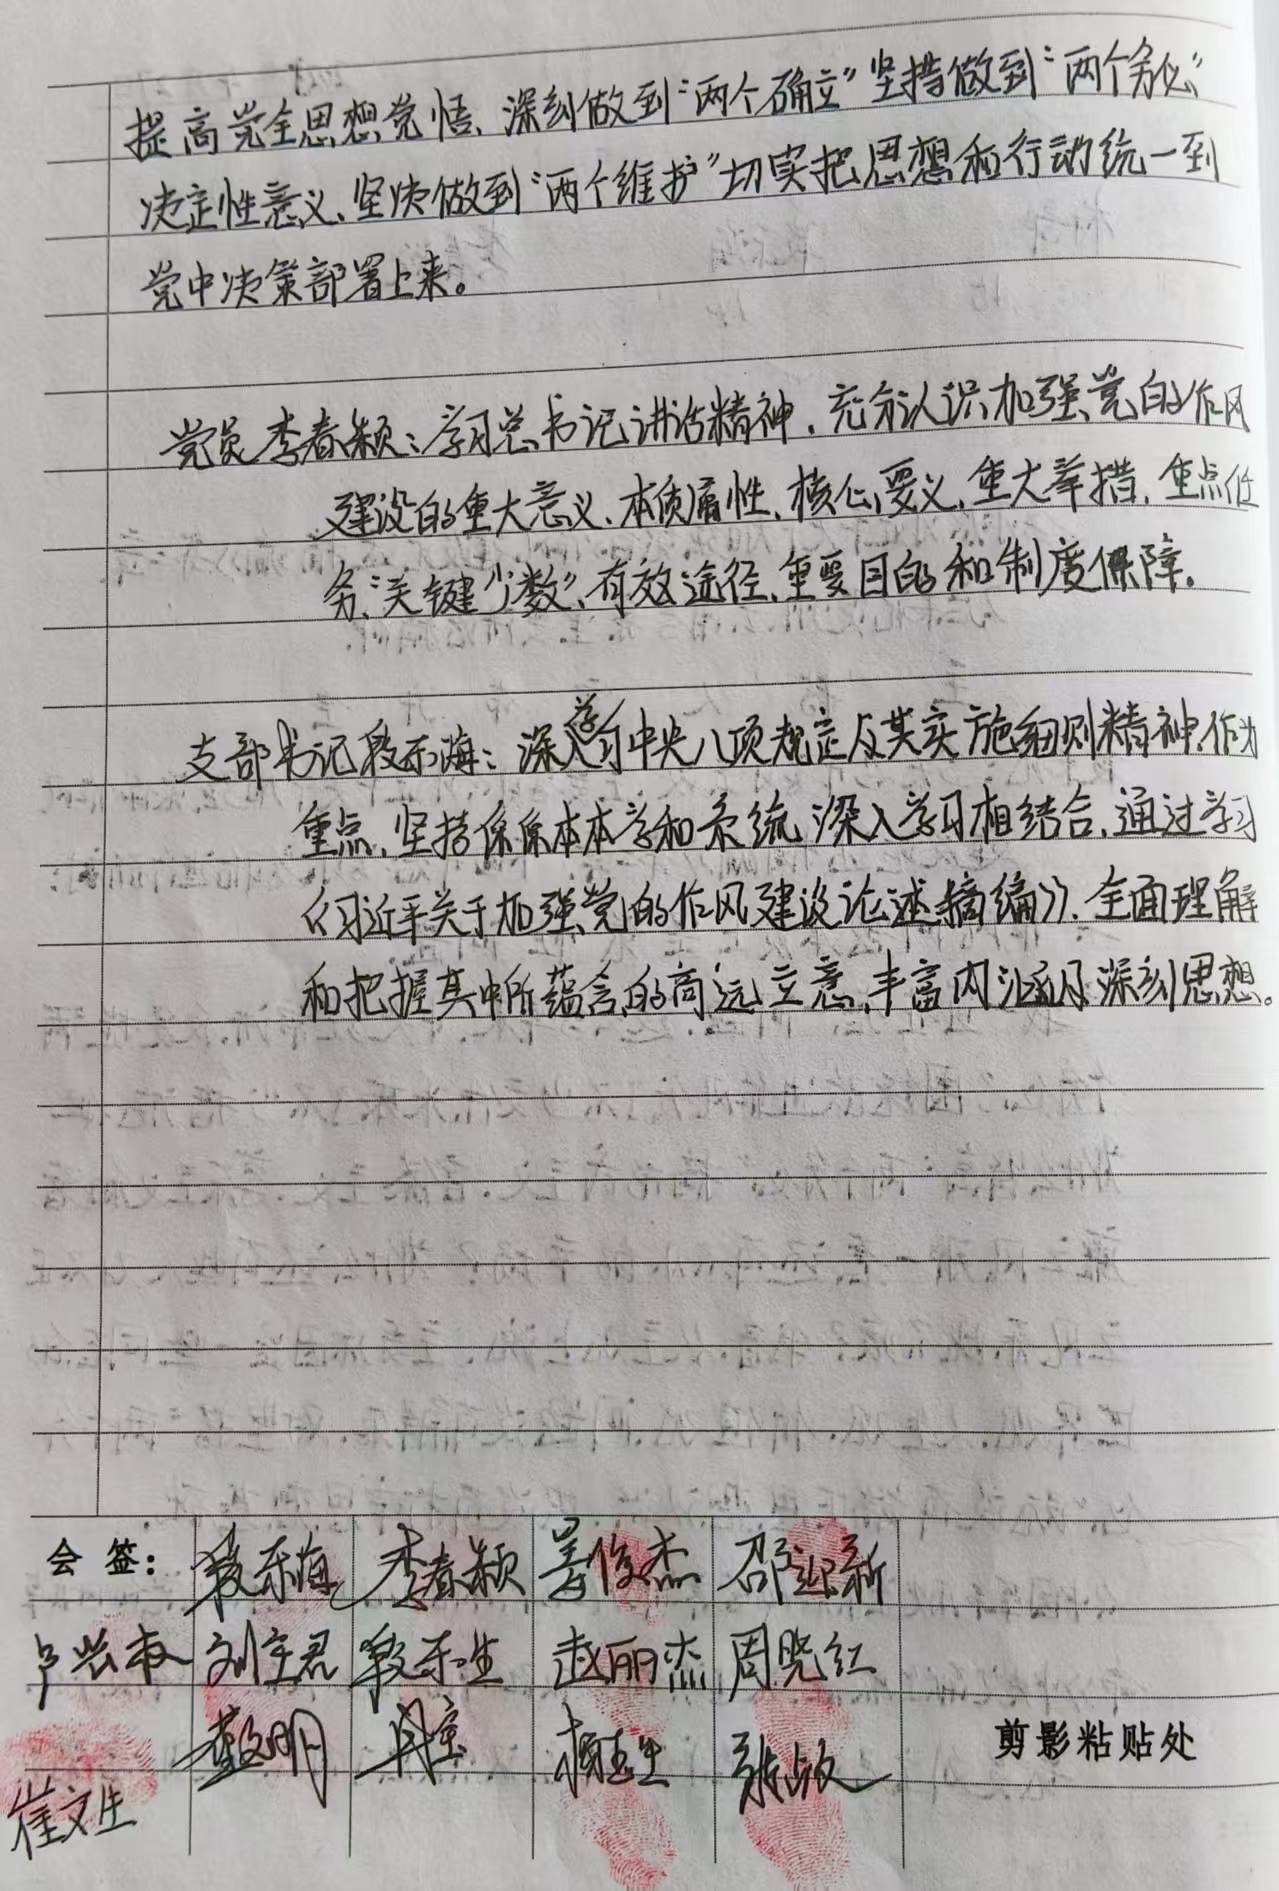 提高党全思想党悟、深刻做到“两个确立”坚持做到“两个务必”
决定性意义、坚决做到“两个维护”切实把思想和行动统一到
党中决策部署上来。
党员李春颖：学习总书记讲话精神，充分认识加强党的作风
建设的重大意义、本质属性、核心要义、重大举措、重点任
务、“关键少数”、有效途径、重要目的和制度保障。
支部书记段东海：深入学习中央八项规定及其实施细则精神作为
重点，坚持原原本本学和系统深入学习相结合，通过学习
《习近平关于加强党的作风建设论述摘编》，全面理解
和把握其中所蕴含的高远立意、丰富内涵及深刻思想。
会签： 段东海 李春颖 姜俊杰 邵迎新
卢兴权 刘 君 段东生 赵丽杰 周晓红
明 生 张
剪影粘贴处
崔文生